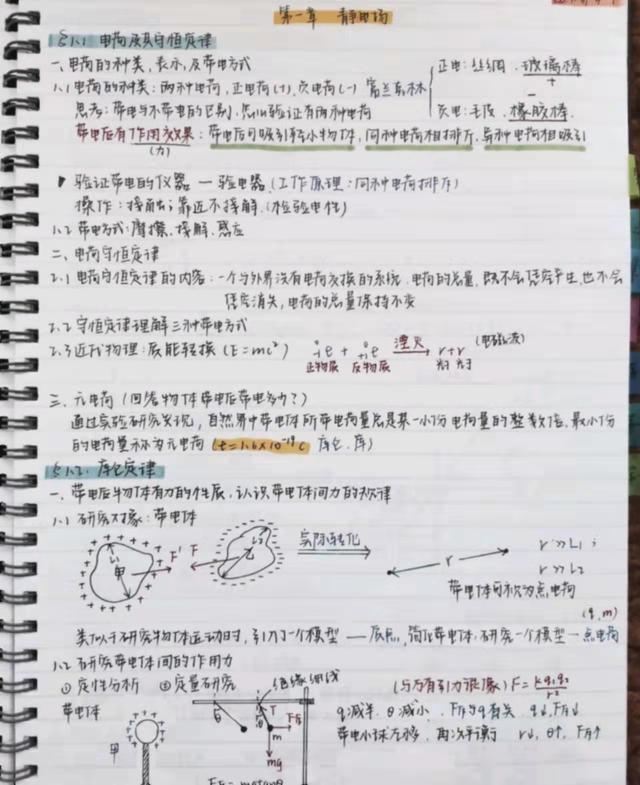 第一章 静电场
§1.1 电荷及其守恒定律
一、电荷的种类、表示,及带电方式
1.1 电荷的种类:两种电荷,正电荷(+),负电荷(-) 富兰克林
正电:丝绸、玻璃棒
+
负电:毛皮、橡胶棒
-
思考:带电与不带电的区别,怎么验证有两种电荷
带电后有作用力效果:带电后可吸引轻小物体,同种电荷相排斥,异种电荷相吸引
(力)
验证带电的仪器 — 验电器(工作原理:同种电荷排斥)
操作:接触;靠近不接触(检验电性)
1.2 带电方式:摩擦、接触、感应
二、电荷守恒定律
2.1 电荷守恒定律的内容:一个与外界没有电荷交换的系统,电荷的总量,既不会凭空产生,也不会
凭空消失,电荷的总量保持不变
2.2 守恒定律理解三种带电方式
2.3 近代物理:质能转换(E=mc²) e + e 湮灭 r+r (电磁波)
正物质 反物质 光子 光子
三、元电荷(回答物体带电后带电多少?)
通过实验研究发现,自然界中带电体所带电荷量总是某一小份电荷量的整数倍,最小份
的电荷量称为元电荷(e=1.6×10⁻¹⁹C 库仑、库)
§1.2、库仑定律
一、带电后物体有力的性质,认识带电体间力的规律
1.1 研究对象:带电体
L₁ 甲 F' F L₂ 乙 实际转化 r r≫L₁;
r≫L₂
带电体可称为点电荷
(q,m)
类似于研究物体运动时,引入了一个模型 — 质点,简化带电体,研究一个模型 — 点电荷
1.2 研究带电体间的作用力
①定性分析 ②定量研究 绝缘细线 (与万有引力很像) F=kq₁q₂/r²
带电体 θ θ T F斥 q减半 θ减小、F斥与q有关 q↓,F斥↓
甲 m 带电小球左移,再次平衡 r↓ θ↑ F斥↑
mg
F斥=mgtanθ